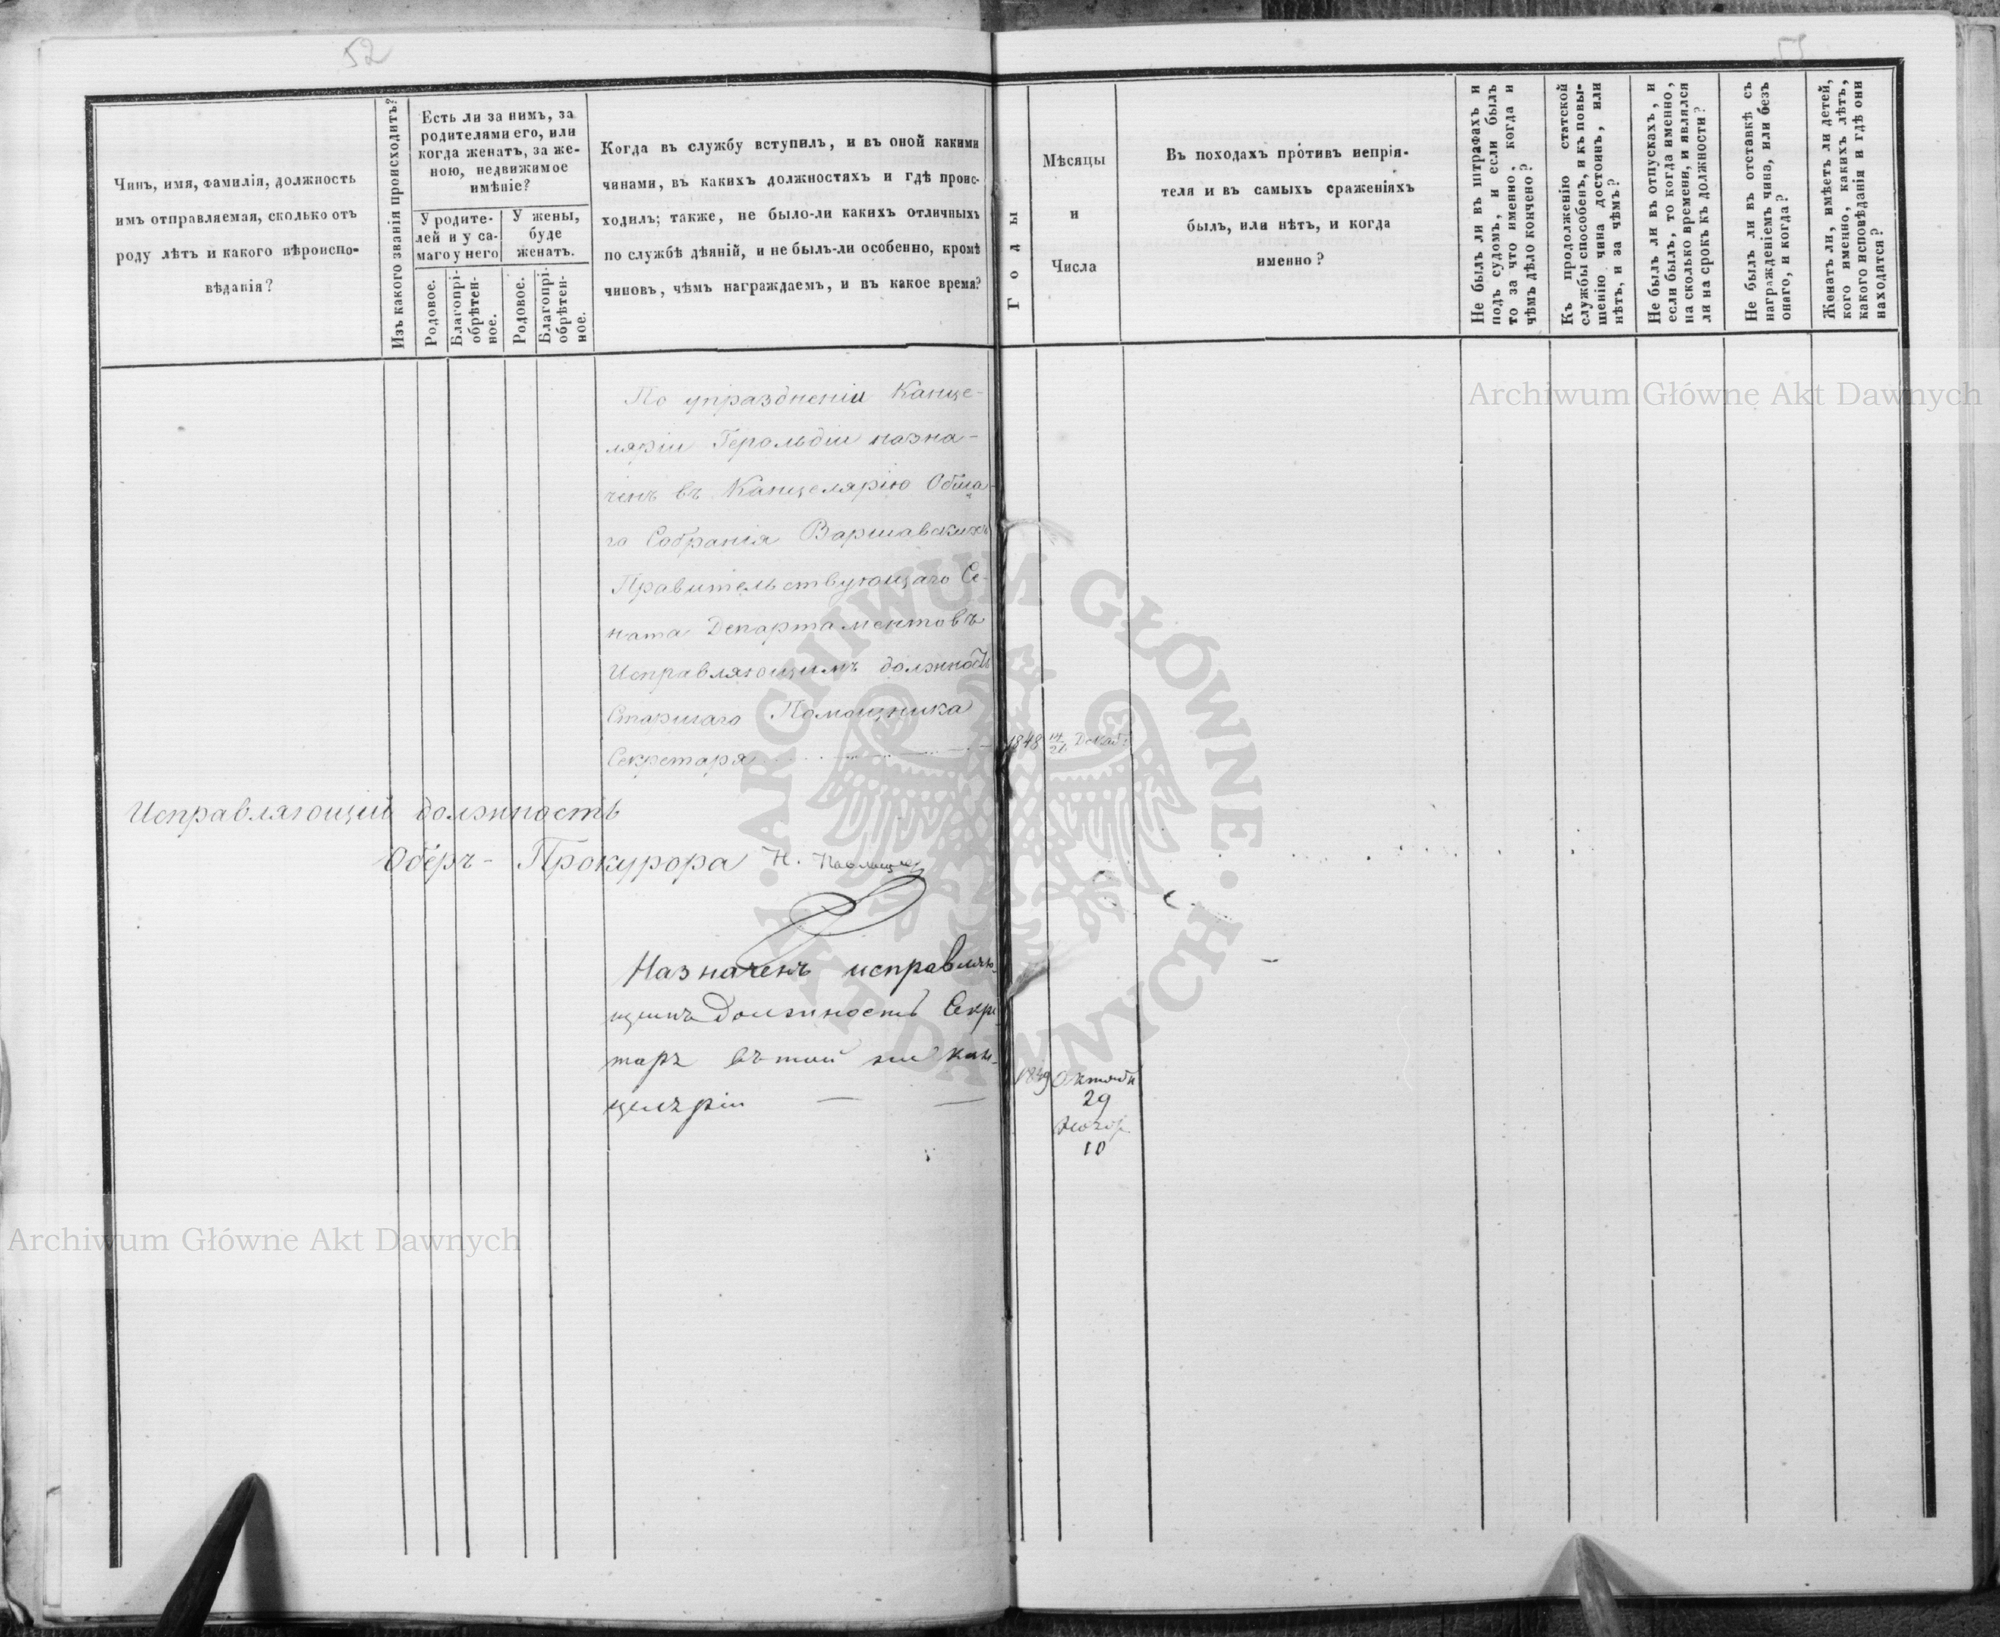 52
Чинъ, имя, фамилія, должность
имъ отправляемая, сколько отъ
роду лѣтъ и какого вѣроиспо-
вѣданія?
Изъ какого званія происходитъ?
Есть ли за нимъ, за
родителями его, или
когда женатъ, за же-
ною, недвижимое
имѣніе?
У родите-
лей и у са-
маго у него
У жены,
буде
женатъ.
Родовое.
Благопрі-
обрѣтен-
ное.
Родовое.
Благопрі-
обрѣтен-
ное.
Когда въ службу вступилъ, и въ оной какими
чинами, въ какихъ должностяхъ и гдѣ проис-
ходилъ; также, не было-ли какихъ отличныхъ
по службѣ дѣяній, и не былъ-ли особенно, кромѣ
чиновъ, чѣмъ награждаемъ, и въ какое время?
Годы
Мѣсяцы
и
Числа
Въ походахъ противъ непрія-
теля и въ самыхъ сраженіяхъ
былъ, или нѣтъ, и когда
именно?
Не былъ ли въ штрафахъ и
подъ судомъ, и если былъ
то за что именно, когда и
чѣмъ дѣло кончено?
Къ продолженію статской
службы способенъ, и къ повы-
шенію чина достоинъ, или
нѣтъ, и за чѣмъ?
Не былъ ли въ отпускахъ, и
если былъ, то когда именно,
на сколько времени, и являлся
ли на срокъ къ должности?
Не былъ ли въ отставкѣ съ
награжденіемъ чина, или безъ
онаго, и когда?
Женатъ ли, имѣетъ ли дѣтей,
кого именно, какихъ лѣтъ,
какого исповѣданія и гдѣ они
находятся?
По упраздненіи Канце-
ляріи Герольдіи назна-
ченъ въ Канцелярію Обща-
го Собранія Варшавскихъ
Правительствующаго Се-
ната Департаментовъ
Исправляющимъ должность
Старшаго Помощника
Секретаря
1848 Декаб.
Исправляющій должность
Оберъ-Прокурора Н. Павлищевъ
Назначенъ исправляю-
щимъ должность Секре-
таря въ той же Кан-
целяріи
1849 Октября
29
Ноябр.
10
Archiwum Główne Akt Dawnych
Archiwum Główne Akt Dawnych
ARCHIWUM GŁÓWNE
AKT DAWNYCH